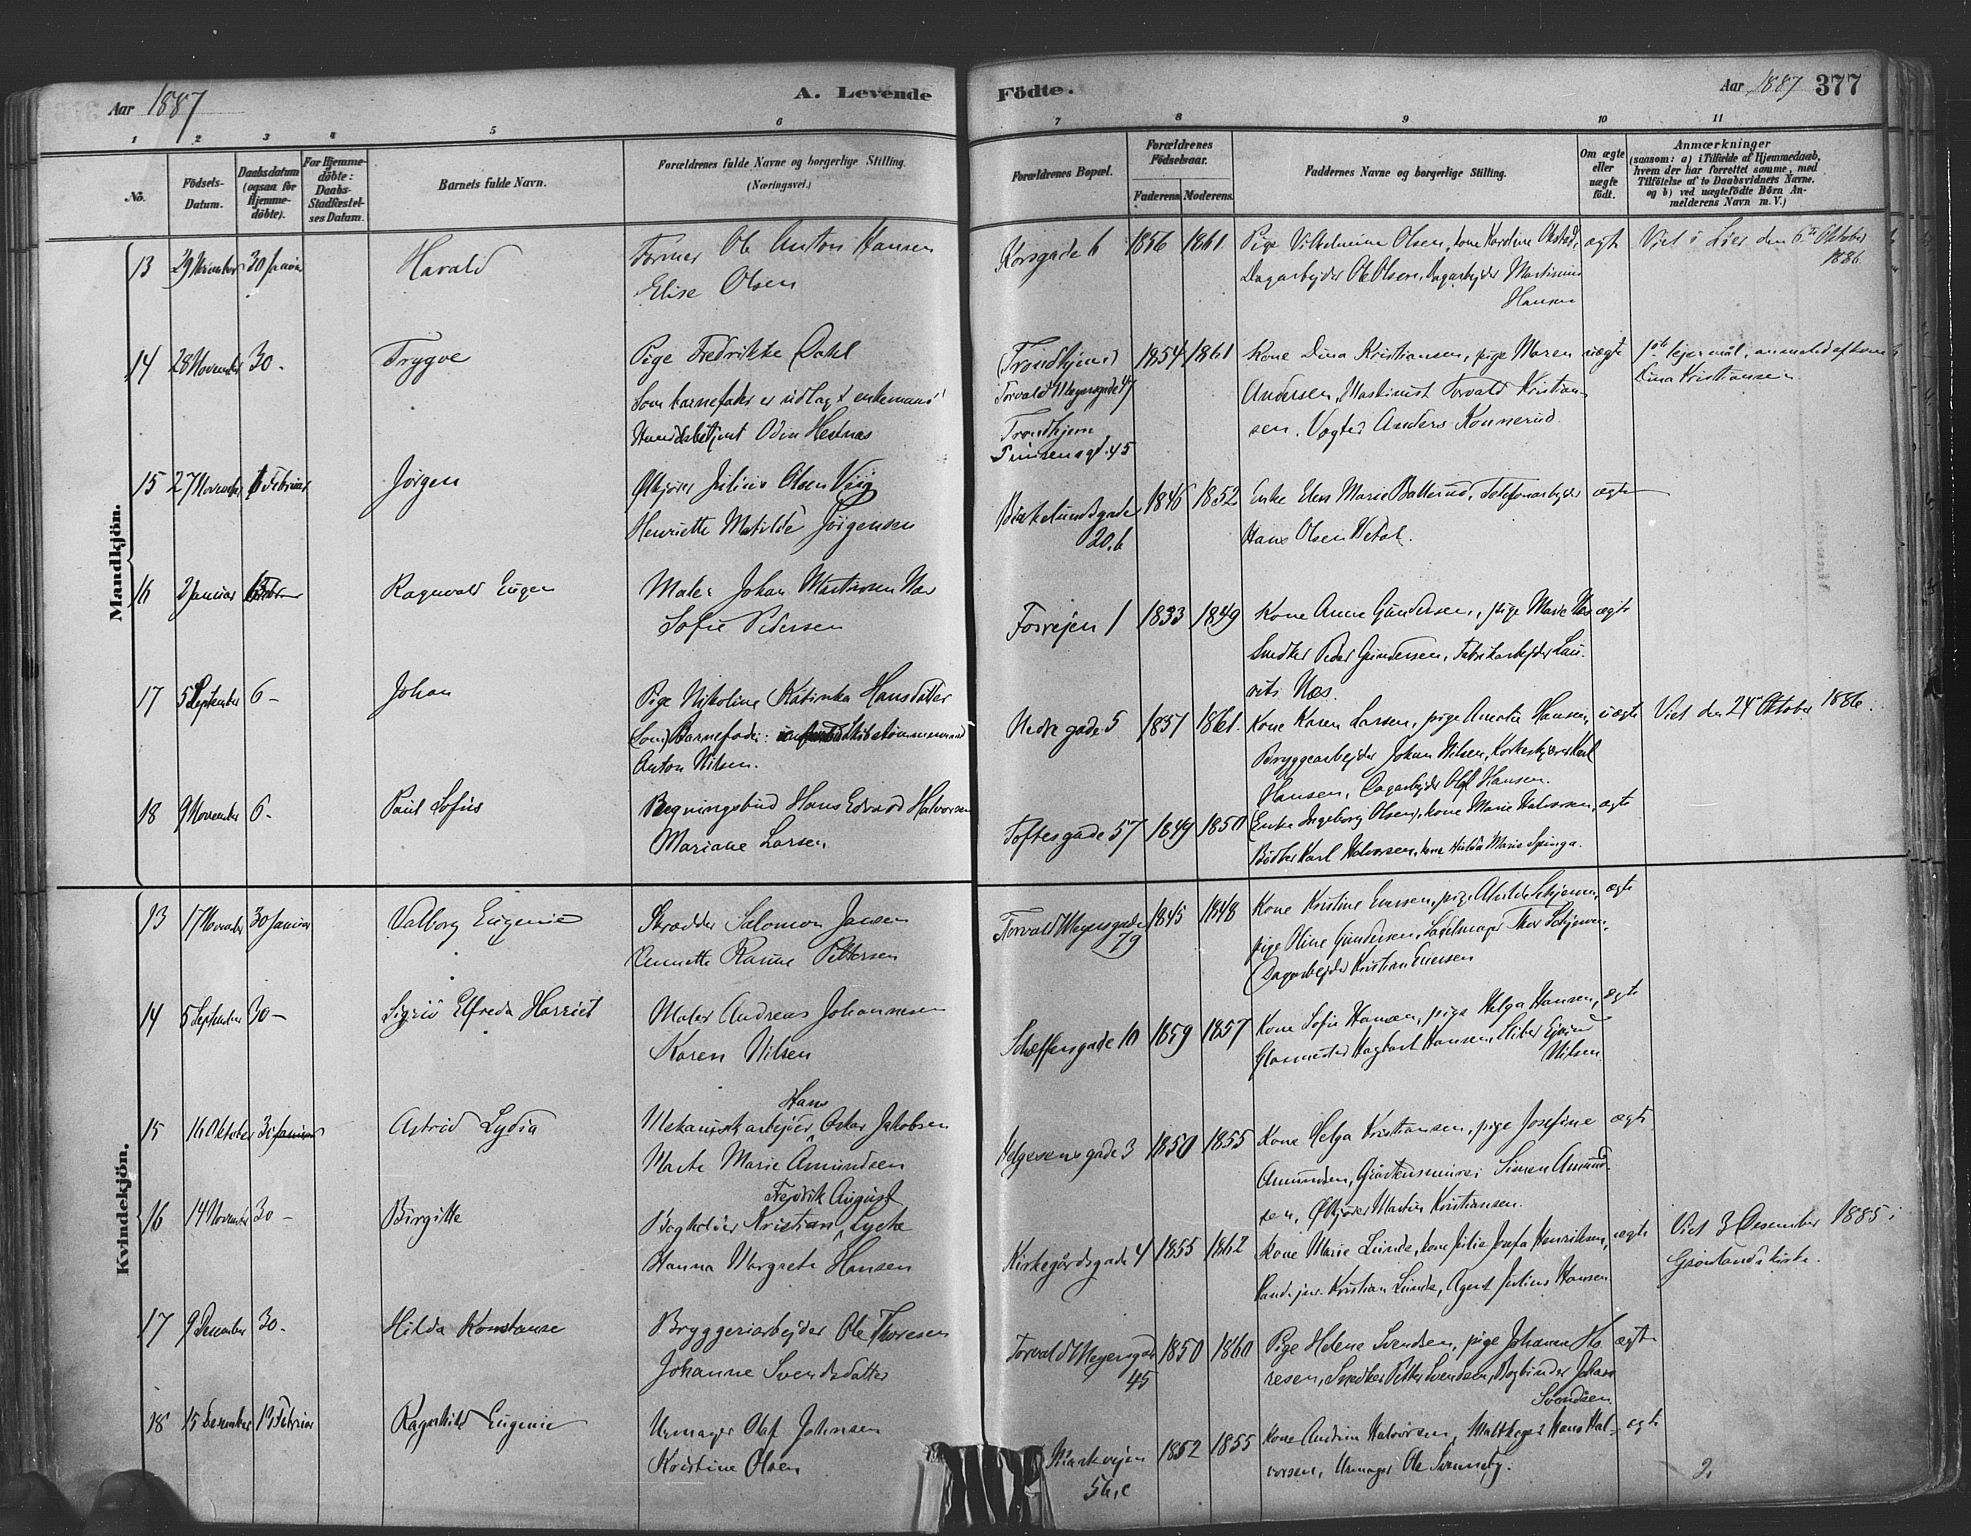 Aar 1887
A. Levende
Födte.
Aar 1887 377
1 2 3 4 5 6 7 8 9 10 11
No.
Födsels-
Datum.
Daabsdatum
(ogsaa for
Hjemme-
döbte).
For Hjemme-
döbte:
Daabs-
Stadfæstel-
ses Datum.
Barnets fulde Navn.
Forældrenes fulde Navne og borgerlige Stilling.
(Næringsvei.)
Forældrenes Bopæl.
Forældrenes
Födselsaar.
Faderens. Moderens.
Faddernes Navne og borgerlige Stilling.
Om ægte
eller
uægte
födt.
Anmærkninger
(saasom: a) i Tilfælde af Hjemmedaab,
hvem der har forrettet samme, med
Tilföielse af to Daabsvidners Navne.
og b) ved uægtefödte Börn An-
melderens Navn m. V.)
Mandkjön.
13 29 November 30 Januar Harald
Former Ole Anton Hansen
Elise Olsen
Korsgade 6 1856 1861
Pige Vilhelmine Olsen, kone Karoline
Dagarbejder Ole Olsen, Dagarbejder Martinius
Hansen
ægte
Viet i Lier den 6te Oktober
1886.
14 28 November 30.- Trygve
Pige Fredrikke Dahl
Som barnefader er udlagt enkemand
Odin Hestnæs
(Trondhjem)
Torvald Meyersgade 47
Trondhjem
45
1854 1861
Kone Dina Kristiansen, pige Maren
Andersen, Maskinist Torvald Kristian-
sen. Vogter Anders Konnerud.
uægte
lejermål, anmeldt af kone
Dina Kristiansen
15 27 November 6 Februar Jörgen
Ølkjører Julius Olsen Viig
Henriette Matilde Jörgensen
Birkelundsgade
20.b
1846 1852
Enke Elen Marie Ballerud, Telefonarbejder
Hans Olsen
ægte
16 2 Januar Ragnvald Eugen
Maler Johan Martinsen Næs
Sofie Pedersen
Fossvejen 1 1833 1849
Kone Anne Gundersen, pige Marie Næs
Snedker Peder Gundersen, Fabrikarbejder Lau-
rits Næs.
ægte
17 5 September 6- Johan
Pige Nikoline Katinka Hansdatter
Som Barnefader: Skibstømmermand
Anton Nilsen.
Nedre gade 5 1857 1861.
Kone Karen Larsen, pige Amalie Hansen,
Bryggearbejder Johan Nilsen, Korkeskjærer Karl
Hansen, Dagarbejder Olaf Hansen.
uægte
Viet den 24de Oktober 1886.
18 9 November 6- Paul Sofus
Bygningsbud Hans Edvard Halvorsen
Mariane Larsen,
Toftesgade 57 1849 1850
Enke Ingeborg Olsen, kone Marie Halvorsen,
Bødker Karl Halvorsen, kone Hulda Marie Spinga.
ægte
Kvindekjön.
13 17 November 30 Januar Valborg Eugenie
Skrædder Salomon Jansen
Annette Karine Pettersen
Torvald Meyersgade
79
1845 1848
Kone Kristine Eversen, pige Alvilde Skjerven,
pige Oline Gundersen, Sadelmager Thor Skjerven,
Dagarbejder Kristian Eversen
ægte
14 5 September 30- Sigrid Elfreda Harriet
Maler Andreas Johannesen
Karen Nilsen
Schæffersgade 10 1859 1857
Kone Sofie Hansen, pige Helga Hansen,
Glasmester Hagbart Hansen, Sliber Ejvind
Nilsen.
ægte
15 16 Oktober 30 Januar Astrid Lydia
Hans
Mekaniskarbejder Oskar Jakobsen
Marte Marie Amundsen
Helgesensgade 3 1850 1855
Kone Helga Kristiansen, pige Josefine
Amundsen, Simen Amund-
sen, Ølkjører Martin Kristiansen.
ægte
16 14 November 30- Birgitte
Fredrik August
Bogholder Kristian Lycke
Hanna Margrete Hansen
Kirkegårdsgade 4 1855 1862
Kone Marie Lunde, kone Julie Josefa Henriksen,
Kristian Lunde, Agent Julius Hansen
ægte
Viet 3 Desember 1885 i
Grønlands kirke.
17 9 Desember 30.- Hilda Konstanse
Bryggeriarbejder Ole Thoresen
Johanne Svendsdatter
Torvald Meyersgade
45
1850 1860
Pige Helene Svendsen, pige Johanne Tho-
resen, Snedker Petter Svendsen, Bogbinder Johan
Svendsen
ægte
18 15 Desember 13 Februar Ragnhild Eugenie
Urmager Olaf Johnsen
Kristine Olsen
Markvejen
56,c
1852 1855
Kone Andrine Halvorsen, Hans Hal-
vorsen, Urmager Ole Svenneby.
ægte
2.